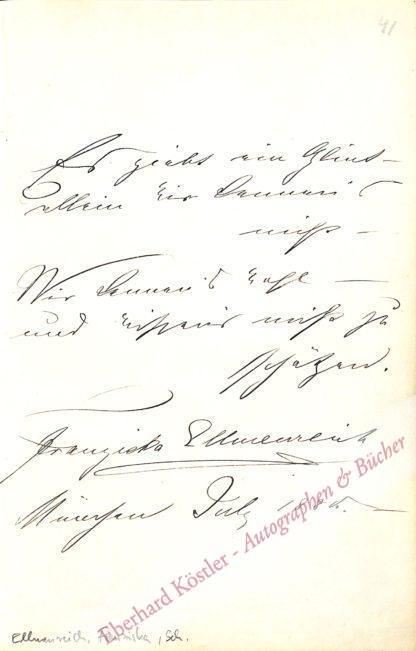 41
Es giebt ein Glück –
allein wir kennen's
nicht –
Wir kennen's wohl –
und wissen's nicht zu
schätzen.
Franziska Ellmenreich
München July
Eberhard Köstler - Autographen & Bücher
Ellmenreich, Franziska, Sch.